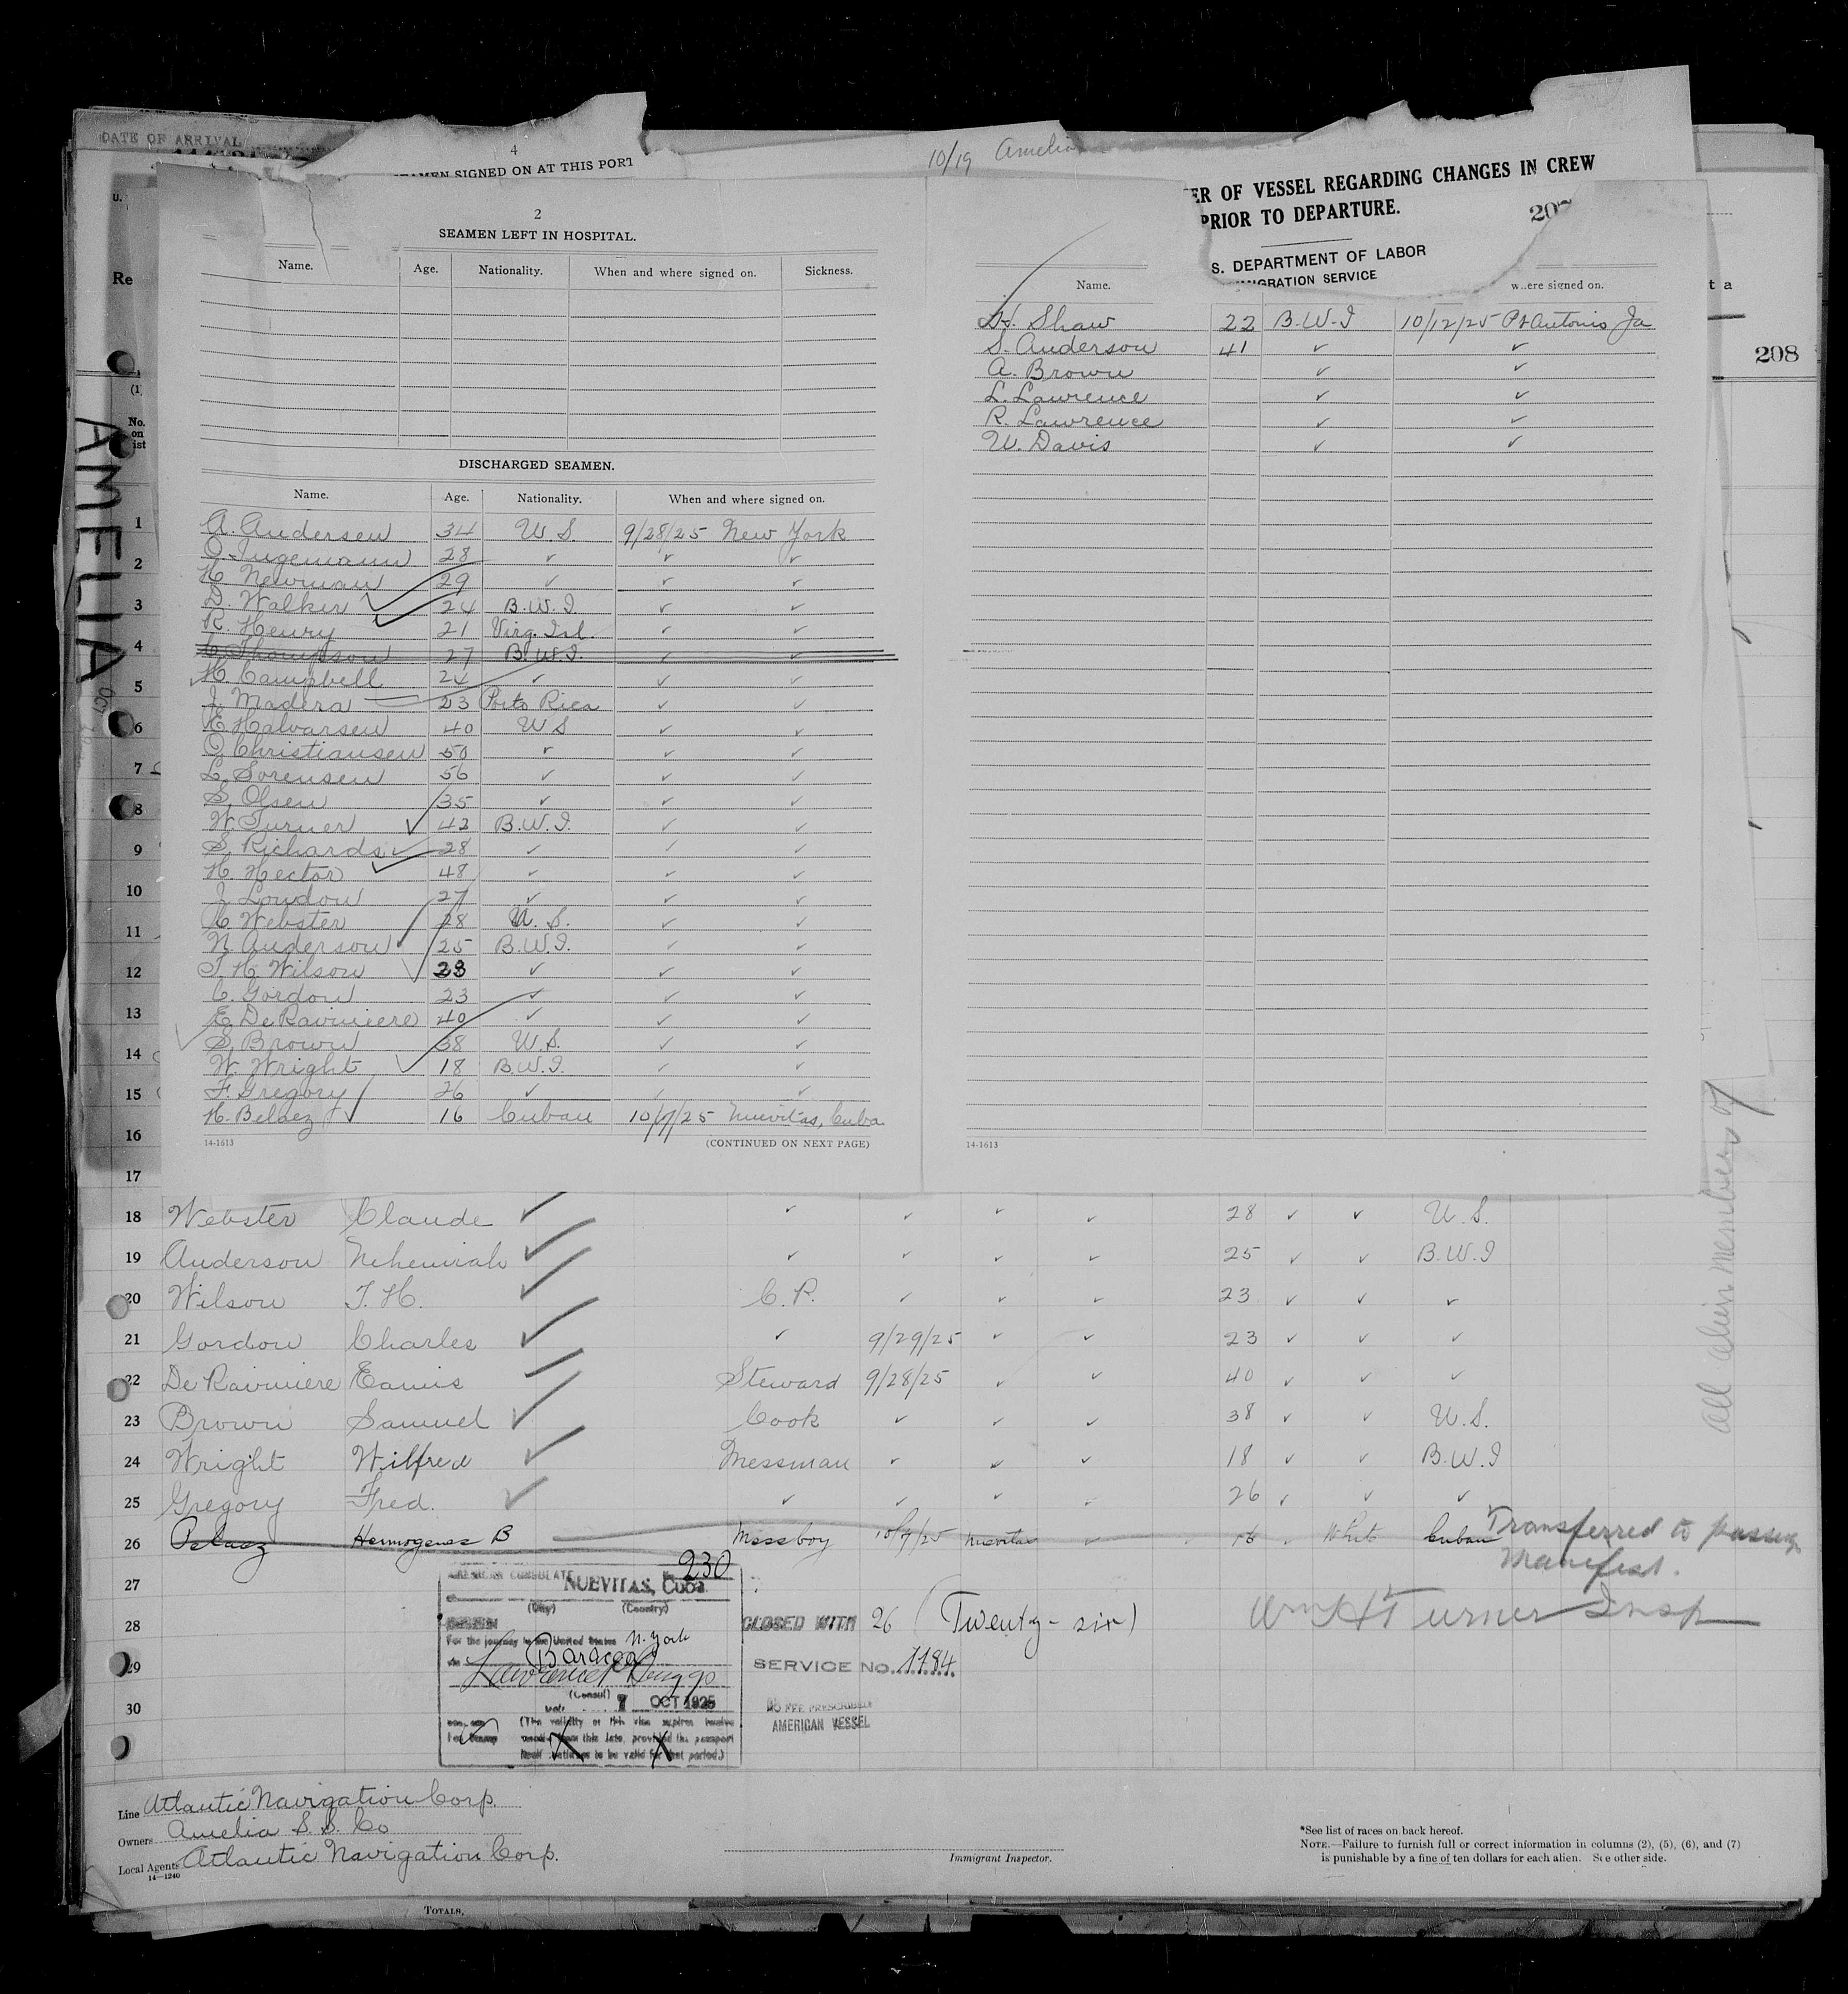 DATE OF ARRIVAL
4
SEAMEN SIGNED ON AT THIS PORT
10/19 Amelia
ER OF VESSEL REGARDING CHANGES IN CREW
PRIOR TO DEPARTURE.
207
S. DEPARTMENT OF LABOR
IMMIGRATION SERVICE
Re
t a
208
No.
on
ist
AMELIA
2
SEAMEN LEFT IN HOSPITAL.
Name. Age. Nationality. When and where signed on. Sickness.
DISCHARGED SEAMEN.
Name. Age. Nationality. When and where signed on.
A. Andersen 34 U.S. 9/28/25 New York
O. Jugemann 28 ✓ ✓ ✓
H. Newman 29 ✓ ✓ ✓
D. Walker 24 B.W.I. ✓ ✓
R. Henry 21 Virg. Isl. ✓ ✓
C. Thompson 27 B.W.I. ✓ ✓
H. Campbell 24 ✓ ✓ ✓
J. Madera 23 Porto Rica ✓ ✓
E. Halvarsen 40 U S ✓ ✓
O. Christiansen 50 ✓ ✓ ✓
L. Sorensen 56 ✓ ✓ ✓
S. Olsen 35 ✓ ✓ ✓
W. Turner 43 B.W.I. ✓ ✓
S. Richards 28 ✓ ✓ ✓
H. Hector 48 ✓ ✓ ✓
J. Loudon 27 ✓ ✓ ✓
C. Webster 28 U.S. ✓ ✓
N. Anderson 25 B.W.I. ✓ ✓
T. H. Wilson 23 ✓ ✓ ✓
C. Gordon 23 ✓ ✓ ✓
E. De Raviniere 40 ✓ ✓ ✓
S. Brown 38 U.S. ✓ ✓
W. Wright 18 B.W.I. ✓ ✓
F. Gregory 26 ✓ ✓ ✓
H. Belaez 16 Cuban 10/7/25 Nuevitas, Cuba
14-1613 (CONTINUED ON NEXT PAGE)
Name. where signed on.
H. Shaw 22 B.W.I 10/12/25 Pt Antonio Ja
S. Anderson 41 ✓ ✓
A. Brown ✓ ✓
L. Lawrence ✓ ✓
R. Lawrence ✓ ✓
W. Davis ✓ ✓
14-1613
1
2
3
4
5
6
7
8
9
10
11
12
13
14
15
16
17
18 Webster Claude ✓ ✓ ✓ ✓ ✓ 28 ✓ ✓ U.S.
19 Anderson Nehemiah ✓ ✓ ✓ ✓ ✓ 25 ✓ ✓ B.W.I
20 Wilson T. H. ✓ C.P. ✓ ✓ ✓ 23 ✓ ✓ ✓
21 Gordon Charles ✓ ✓ 9/29/25 ✓ ✓ 23 ✓ ✓ ✓
22 De Raviniere Eamis ✓ Steward 9/28/25 ✓ ✓ 40 ✓ ✓ ✓
23 Brown Samuel ✓ Cook ✓ ✓ ✓ 38 ✓ ✓ U.S.
24 Wright Wilfred ✓ Messman ✓ ✓ ✓ 18 ✓ ✓ B.W.I
25 Gregory Fred. ✓ ✓ ✓ ✓ ✓ 26 ✓ ✓ ✓
26 Pelaez Hermogenes B Messboy 10/7/25 Nuevitas 16 White Cuban Transferred to passeng
Manifest.
27
28
29
30
All alien members of
AMERICAN CONSULATE 230
NUEVITAS, Cuba.
(City) (Country)
For the journey to the United States N. York
Baracoa
(Consul)
Date 7 OCT 1925
(The validity of this visa expires twelve
months from this date, provided the passport
itself continues to be valid for that period.)
CLOSED WITH 26 (Twenty-six)
SERVICE NO. 1184
NO FEE PRESCRIBED
AMERICAN VESSEL
Wm H Turner Insp
Line Atlantic Navigation Corp.
Owners Amelia S.S. Co
Local Agents Atlantic Navigation Corp.
14-1240
Immigrant Inspector.
*See list of races on back hereof.
NOTE.—Failure to furnish full or correct information in columns (2), (5), (6), and (7)
is punishable by a fine of ten dollars for each alien. See other side.
TOTALS,